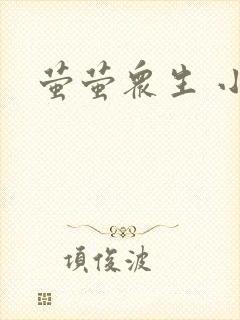 萤萤众生 小
项俊波